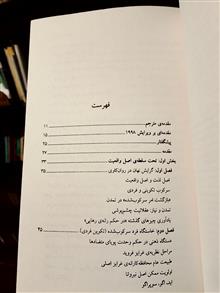 فهرست
مقدمه‌ی مترجم ۱۱
مقدمه‌ای بر ویرایش ۱۹۹۸ ۱۵
پیشگفتار ۲۵
مقدمه ۲۷
بخش اول: تحت سلطه‌ی اصل واقعیت ۳۳
فصل اول: گرایش نهان در روان‌کاوی ۳۵
اصل لذت و اصل واقعیت
سرکوب تکوینی و فردی
«بازگشت امر سرکوب‌شده» در تمدن
تمدن و نیاز: عقلانیت چشم‌پوشی
یادآوری چیزهای گذشته: «در حکم رانه‌ی رهایی»
فصل دوم: خاستگاه فرد سرکوب‌شده (تکوین فردی) ۴۵
دستگاه ذهنی در حکم وحدت پویای متضادها
مراحل نظریه‌ی غرایز فروید
طبیعت عام محافظه‌کارانه‌ی غرایز اصلی
اولویت ممکن اصل نیروانا
اید، اگو، سوپراگو